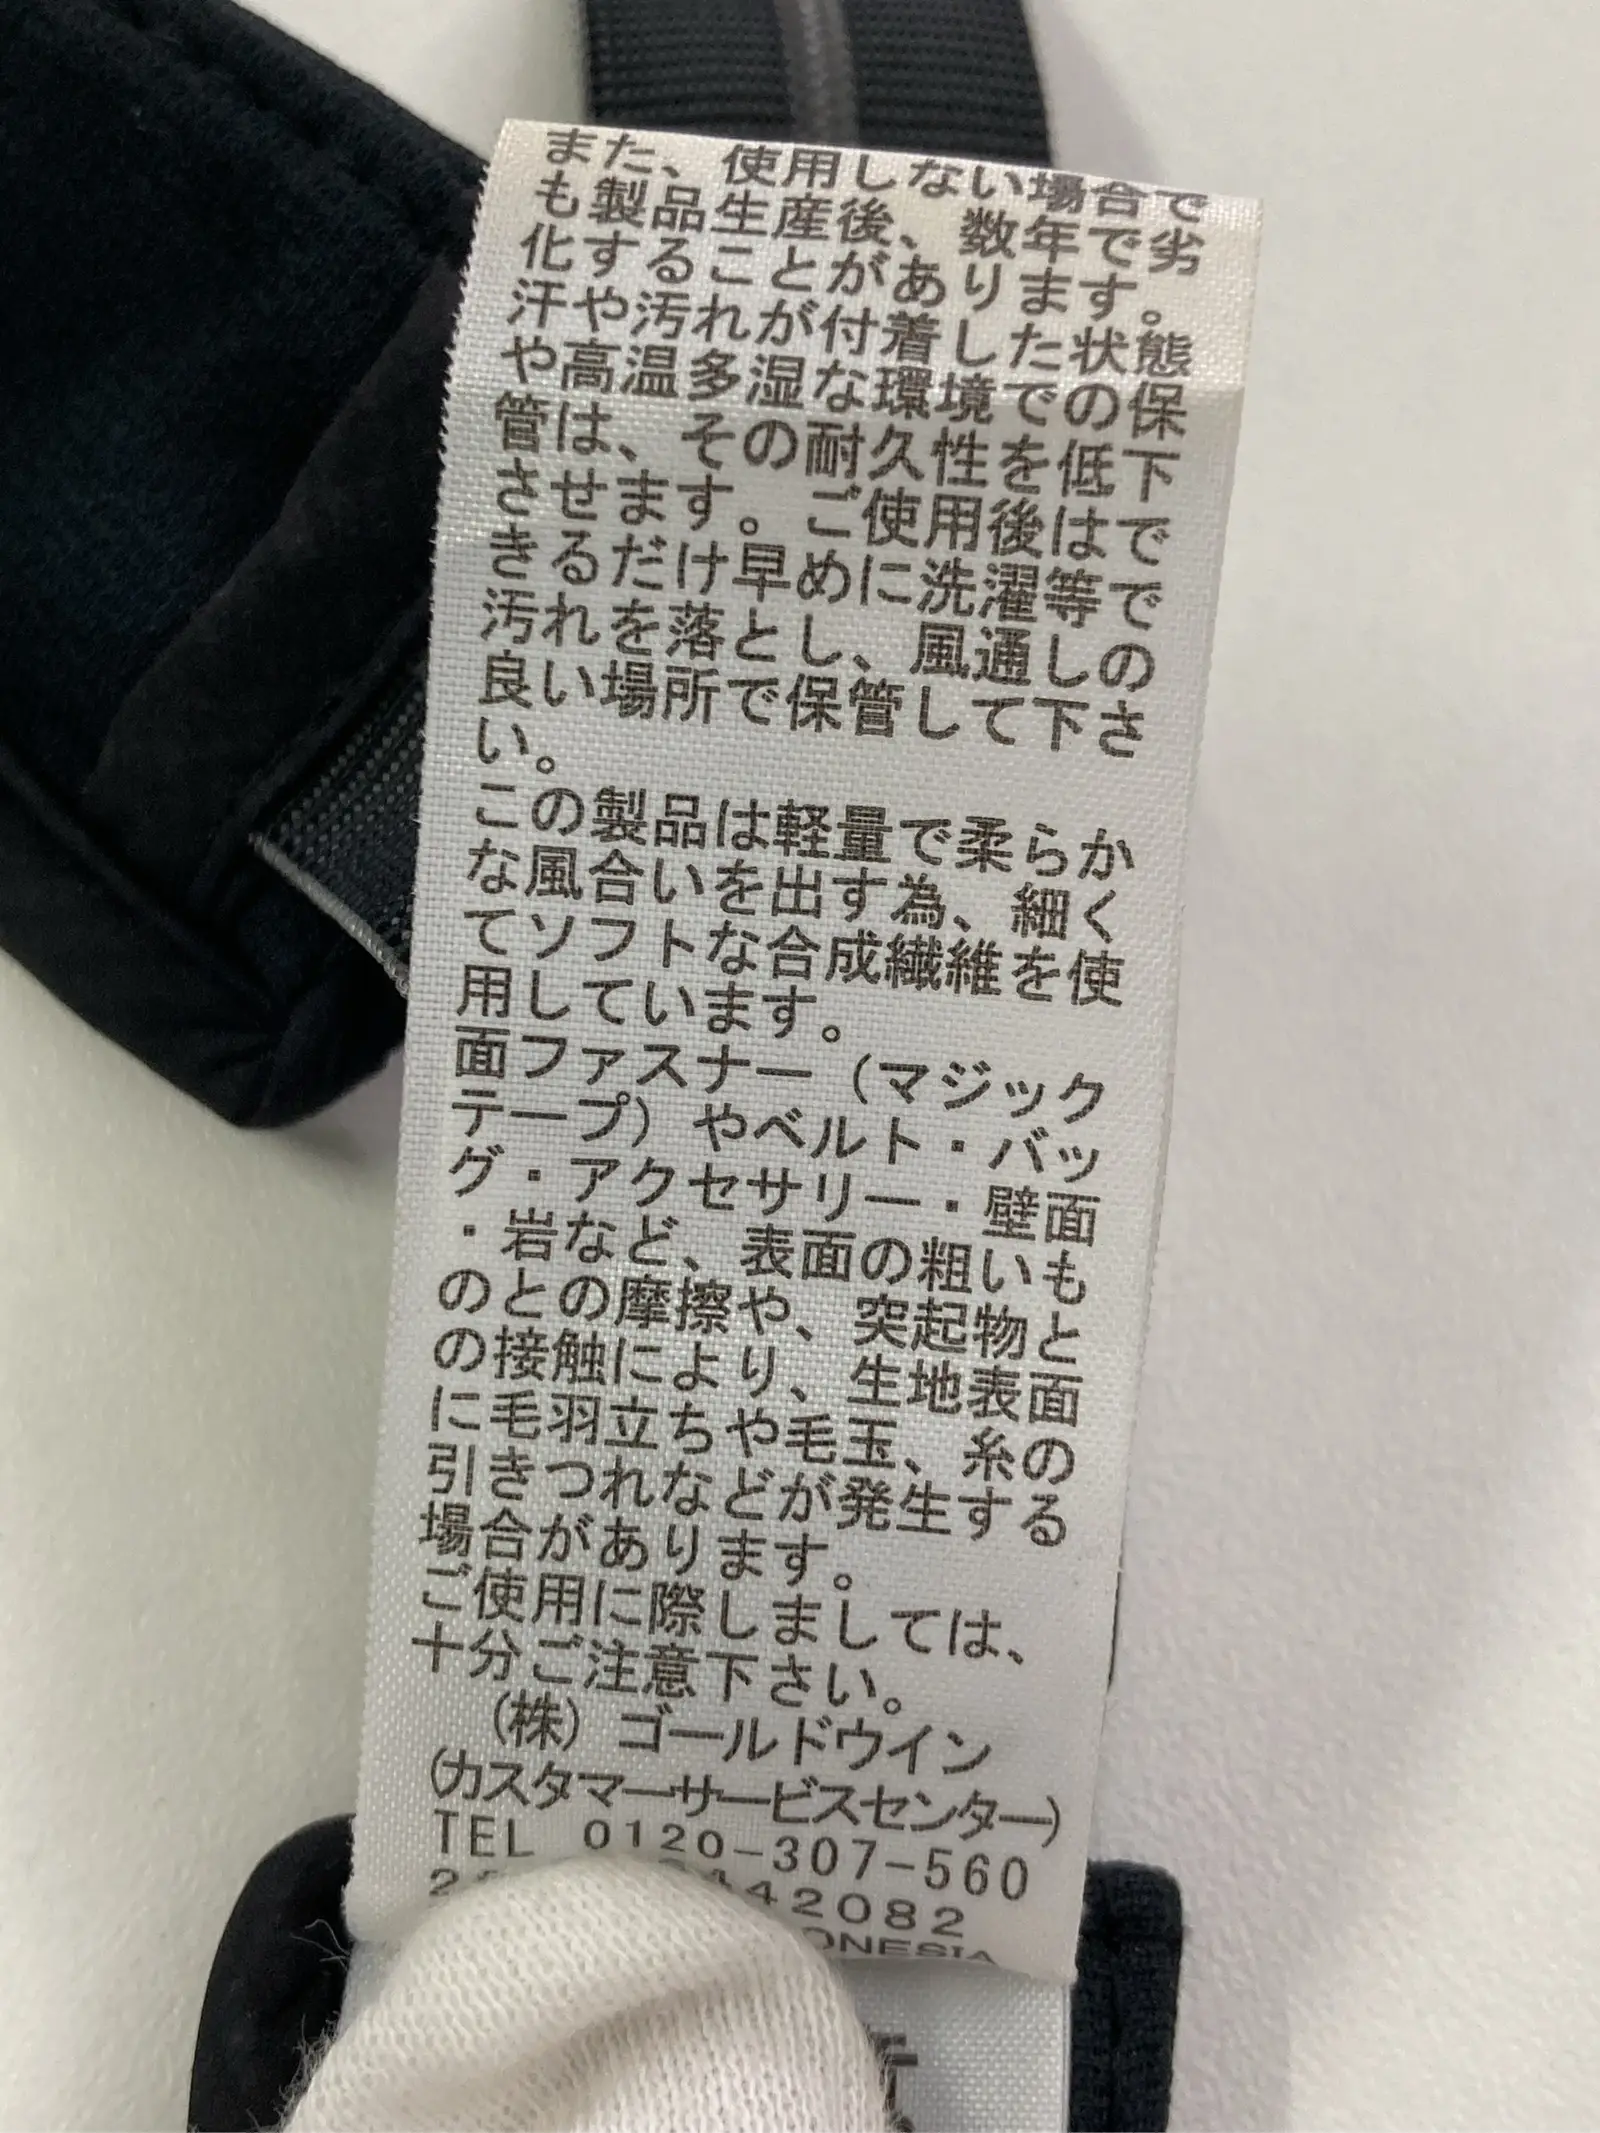 また、使用しない場合で
も製品生産後、数年で劣
化することがあります。
汗や汚れが付着した状態
や高温多湿な環境での保
管は、その耐久性を低下
させます。ご使用後はで
きるだけ早めに洗濯等で
汚れを落とし、風通しの
良い場所で保管して下さ
い。
この製品は軽量で柔らか
な風合いを出す為、細く
てソフトな合成繊維を使
用しています。
面ファスナー（マジック
テープ）やベルト・バッ
グ・アクセサリー・壁面
・岩など、表面の粗いも
のとの摩擦や、突起物と
の接触により、生地表面
に毛羽立ちや毛玉、糸の
引きつれなどが発生する
場合があります。
ご使用に際しましては、
十分ご注意下さい。
（株）ゴールドウイン
（カスタマーサービスセンター）
TEL 0120-307-560
42082